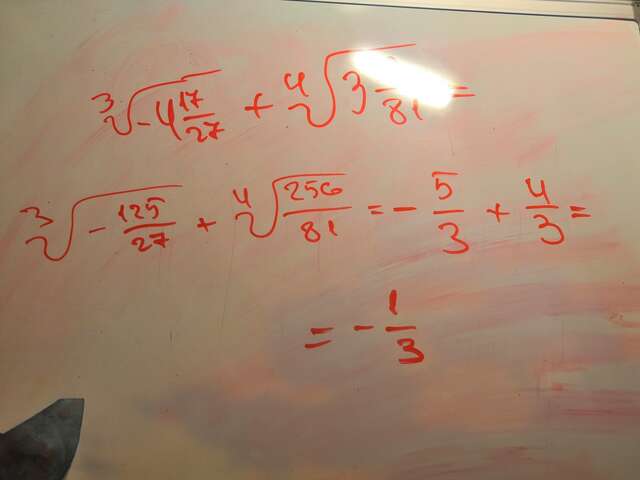 ∛(-4 17/27) + ∜(3 /81) =
∛(-125/27) + ∜(256/81) = - 5/3 + 4/3 =
= - 1/3